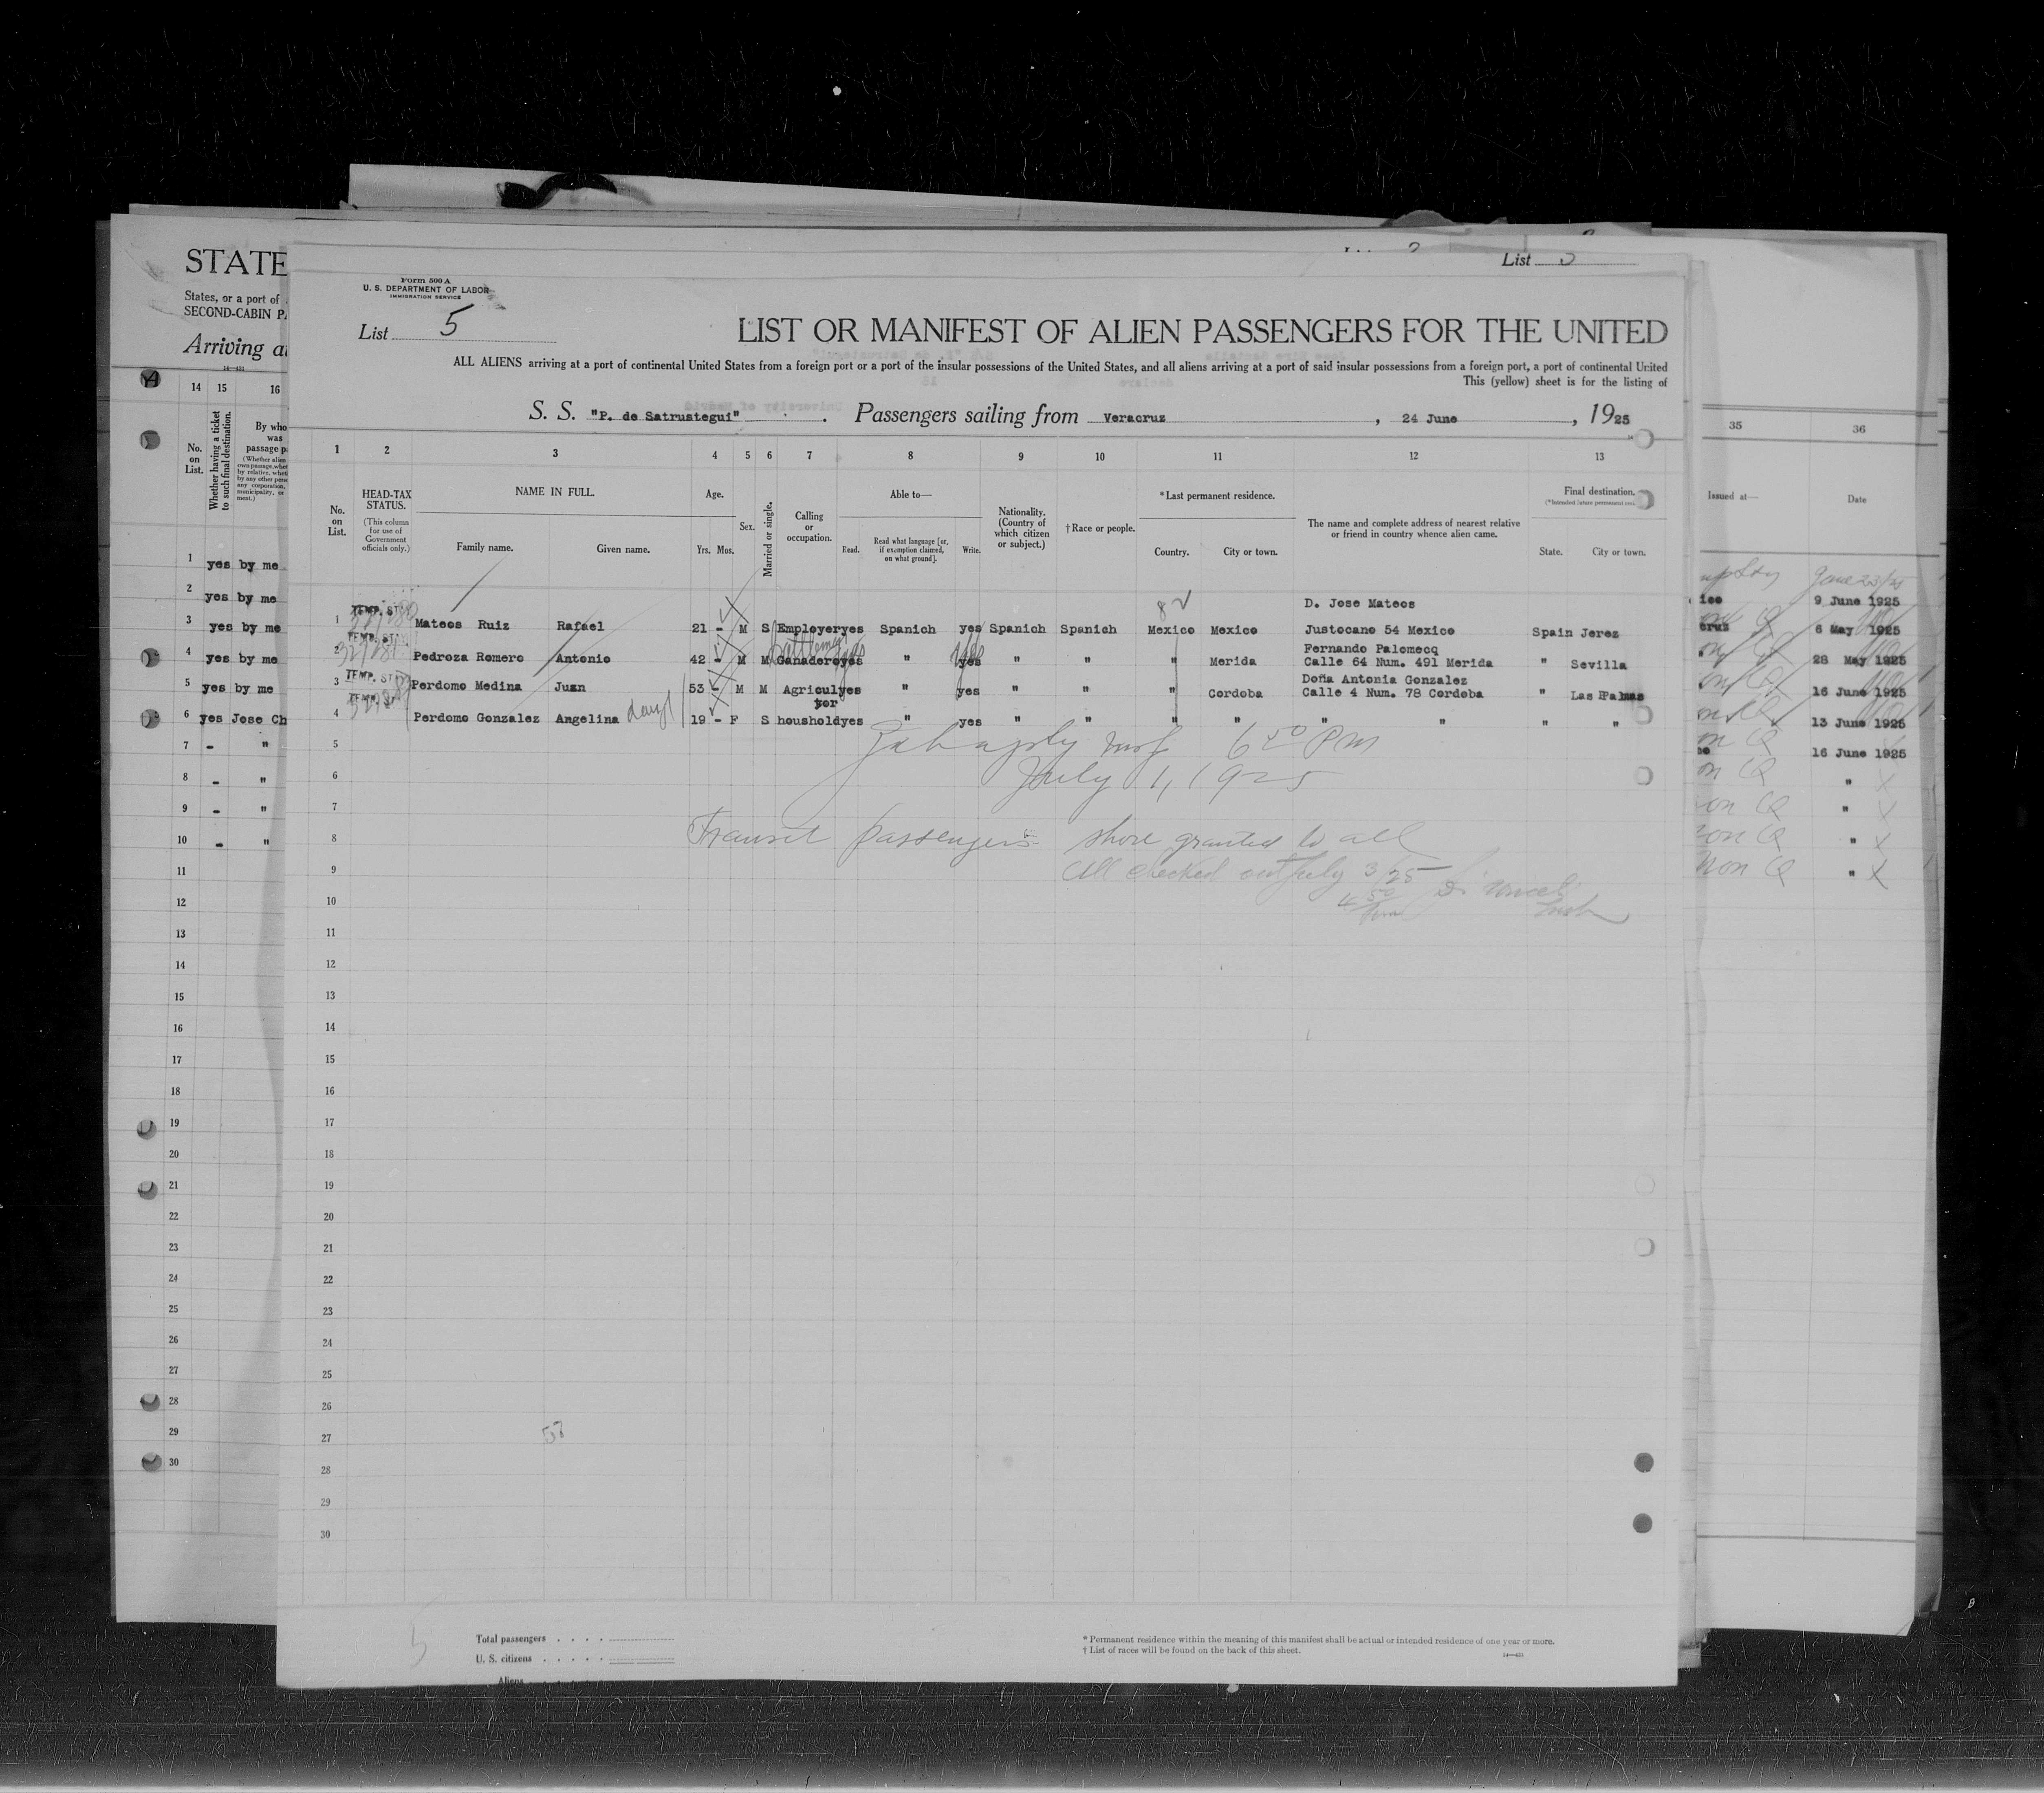 List 3
STATE
States, or a port of
SECOND-CABIN PA
Arriving at
14—431
14 15 16
No. on List.
Whether having a ticket to such final destination.
By who
was
passage p
1 yes by me
2 yes by me
3 yes by me
4 yes by me
5 yes by me
6 yes Jose Ch
7 - "
8 - "
9 - "
10 - "
11
12
13
14
15
16
17
18
19
20
21
22
23
24
25
26
27
28
29
30
Form 500 A
U. S. DEPARTMENT OF LABOR
IMMIGRATION SERVICE
List 5
LIST OR MANIFEST OF ALIEN PASSENGERS FOR THE UNITED
ALL ALIENS arriving at a port of continental United States from a foreign port or a port of the insular possessions of the United States, and all aliens arriving at a port of said insular possessions from a foreign port, a port of continental United
This (yellow) sheet is for the listing of
S. S. "P. de Satrustegui". Passengers sailing from Veracruz, 24 June, 1925
1 2 3 4 5 6 7 8 9 10 11 12 13
No. on List.
HEAD-TAX STATUS.
(This column for use of Government officials only.)
NAME IN FULL.
Family name. Given name.
Age.
Yrs. Mos.
Sex.
Married or single.
Calling or occupation.
Able to—
Read. Read what language [or, if exemption claimed, on what ground]. Write.
Nationality. (Country of which citizen or subject.)
†Race or people.
*Last permanent residence.
Country. City or town.
The name and complete address of nearest relative or friend in country whence alien came.
Final destination.
(*Intended future permanent res.)
State. City or town.
8 ✓
D. Jose Mateos
1 TEMP. ST Mateos Ruiz Rafael 21 - M S Employer yes Spanish yes Spanish Spanish Mexico Mexico Justocano 54 Mexico Spain Jerez
Fernando Palomecq
2 TEMP. ST Pedroza Romero Antonio 42 - M M Ganadero yes " yes " " " Merida Calle 64 Num. 491 Merida " Sevilla
Doña Antonia Gonzalez
3 TEMP. ST Perdomo Medina Juan 53 - M M Agricul yes " yes " " " Cordoba Calle 4 Num. 78 Cordoba " Las Palmas
tor
4 TEMP. Perdomo Gonzalez Angelina 19 - F S houshold yes " yes " " " " " " " "
5
6 July 1, 1925
7
8 Transit passengers shore granted to all
9 All checked out July 3/25
10
11
12
13
14
15
16
17
18
19
20
21
22
23
24
25
26
27
28
29
30
Total passengers
U. S. citizens
Aliens
* Permanent residence within the meaning of this manifest shall be actual or intended residence of one year or more.
† List of races will be found on the back of this sheet.
14—431
35 36
Issued at— Date
9 June 1925
6 May 1925
28 May 1925
16 June 1925
13 June 1925
16 June 1925
"
"
"
"